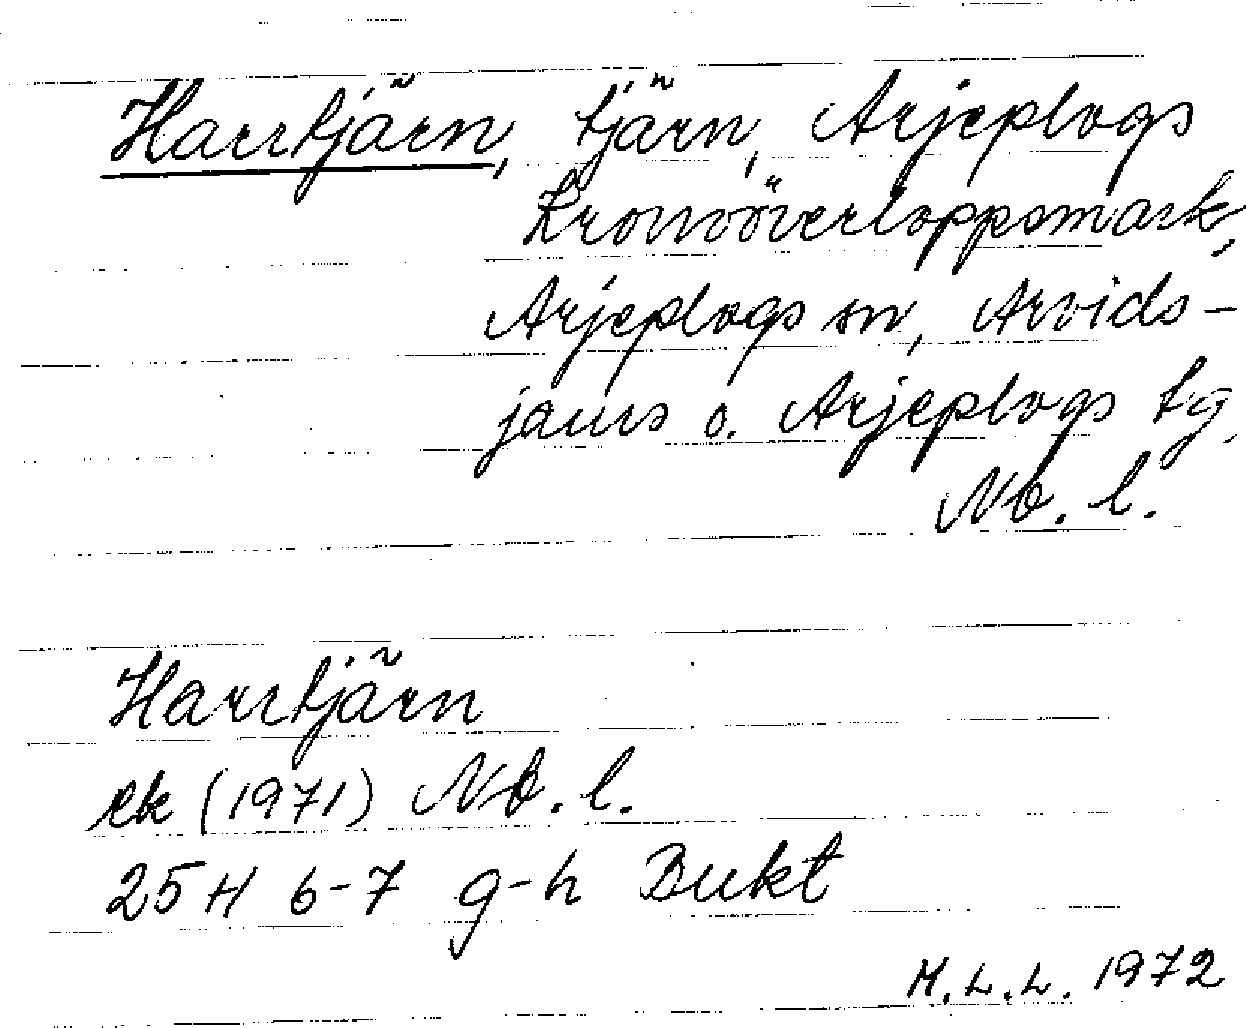 Harrtjärn, tjärn, Arjeplogs
kronoöverloppsmark,
Arjeplogs sn, Arvids-
jaurs o. Arjeplogs tg,
Nb. l.
Harrtjärn
ek (1971) Nb. l.
25H 6-7 g-h Bukt
M.L.L. 1972